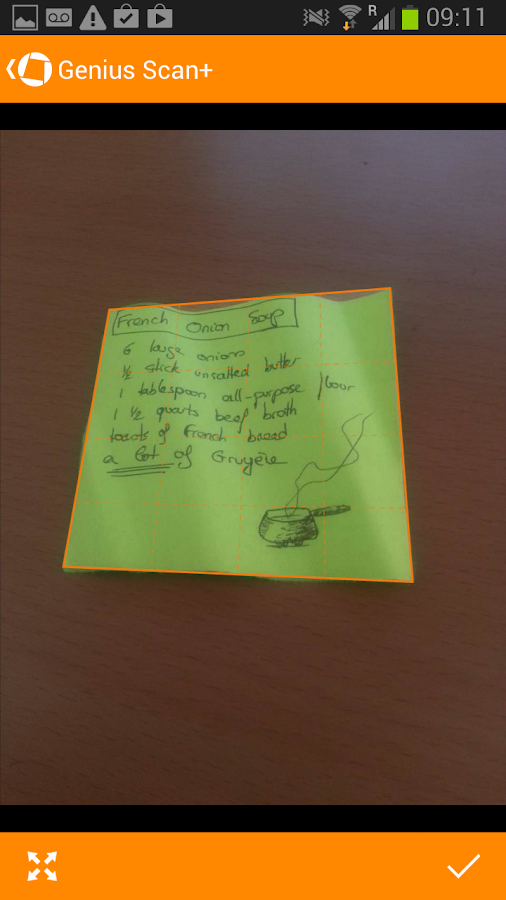 R
09:11
Genius Scan+
French Onion Soup
6 large onions
1/2 stick unsalted butter
1 tablespoon all-purpose flour
1 1/2 quarts beef broth
toasts of French bread
a lot of Gruyère